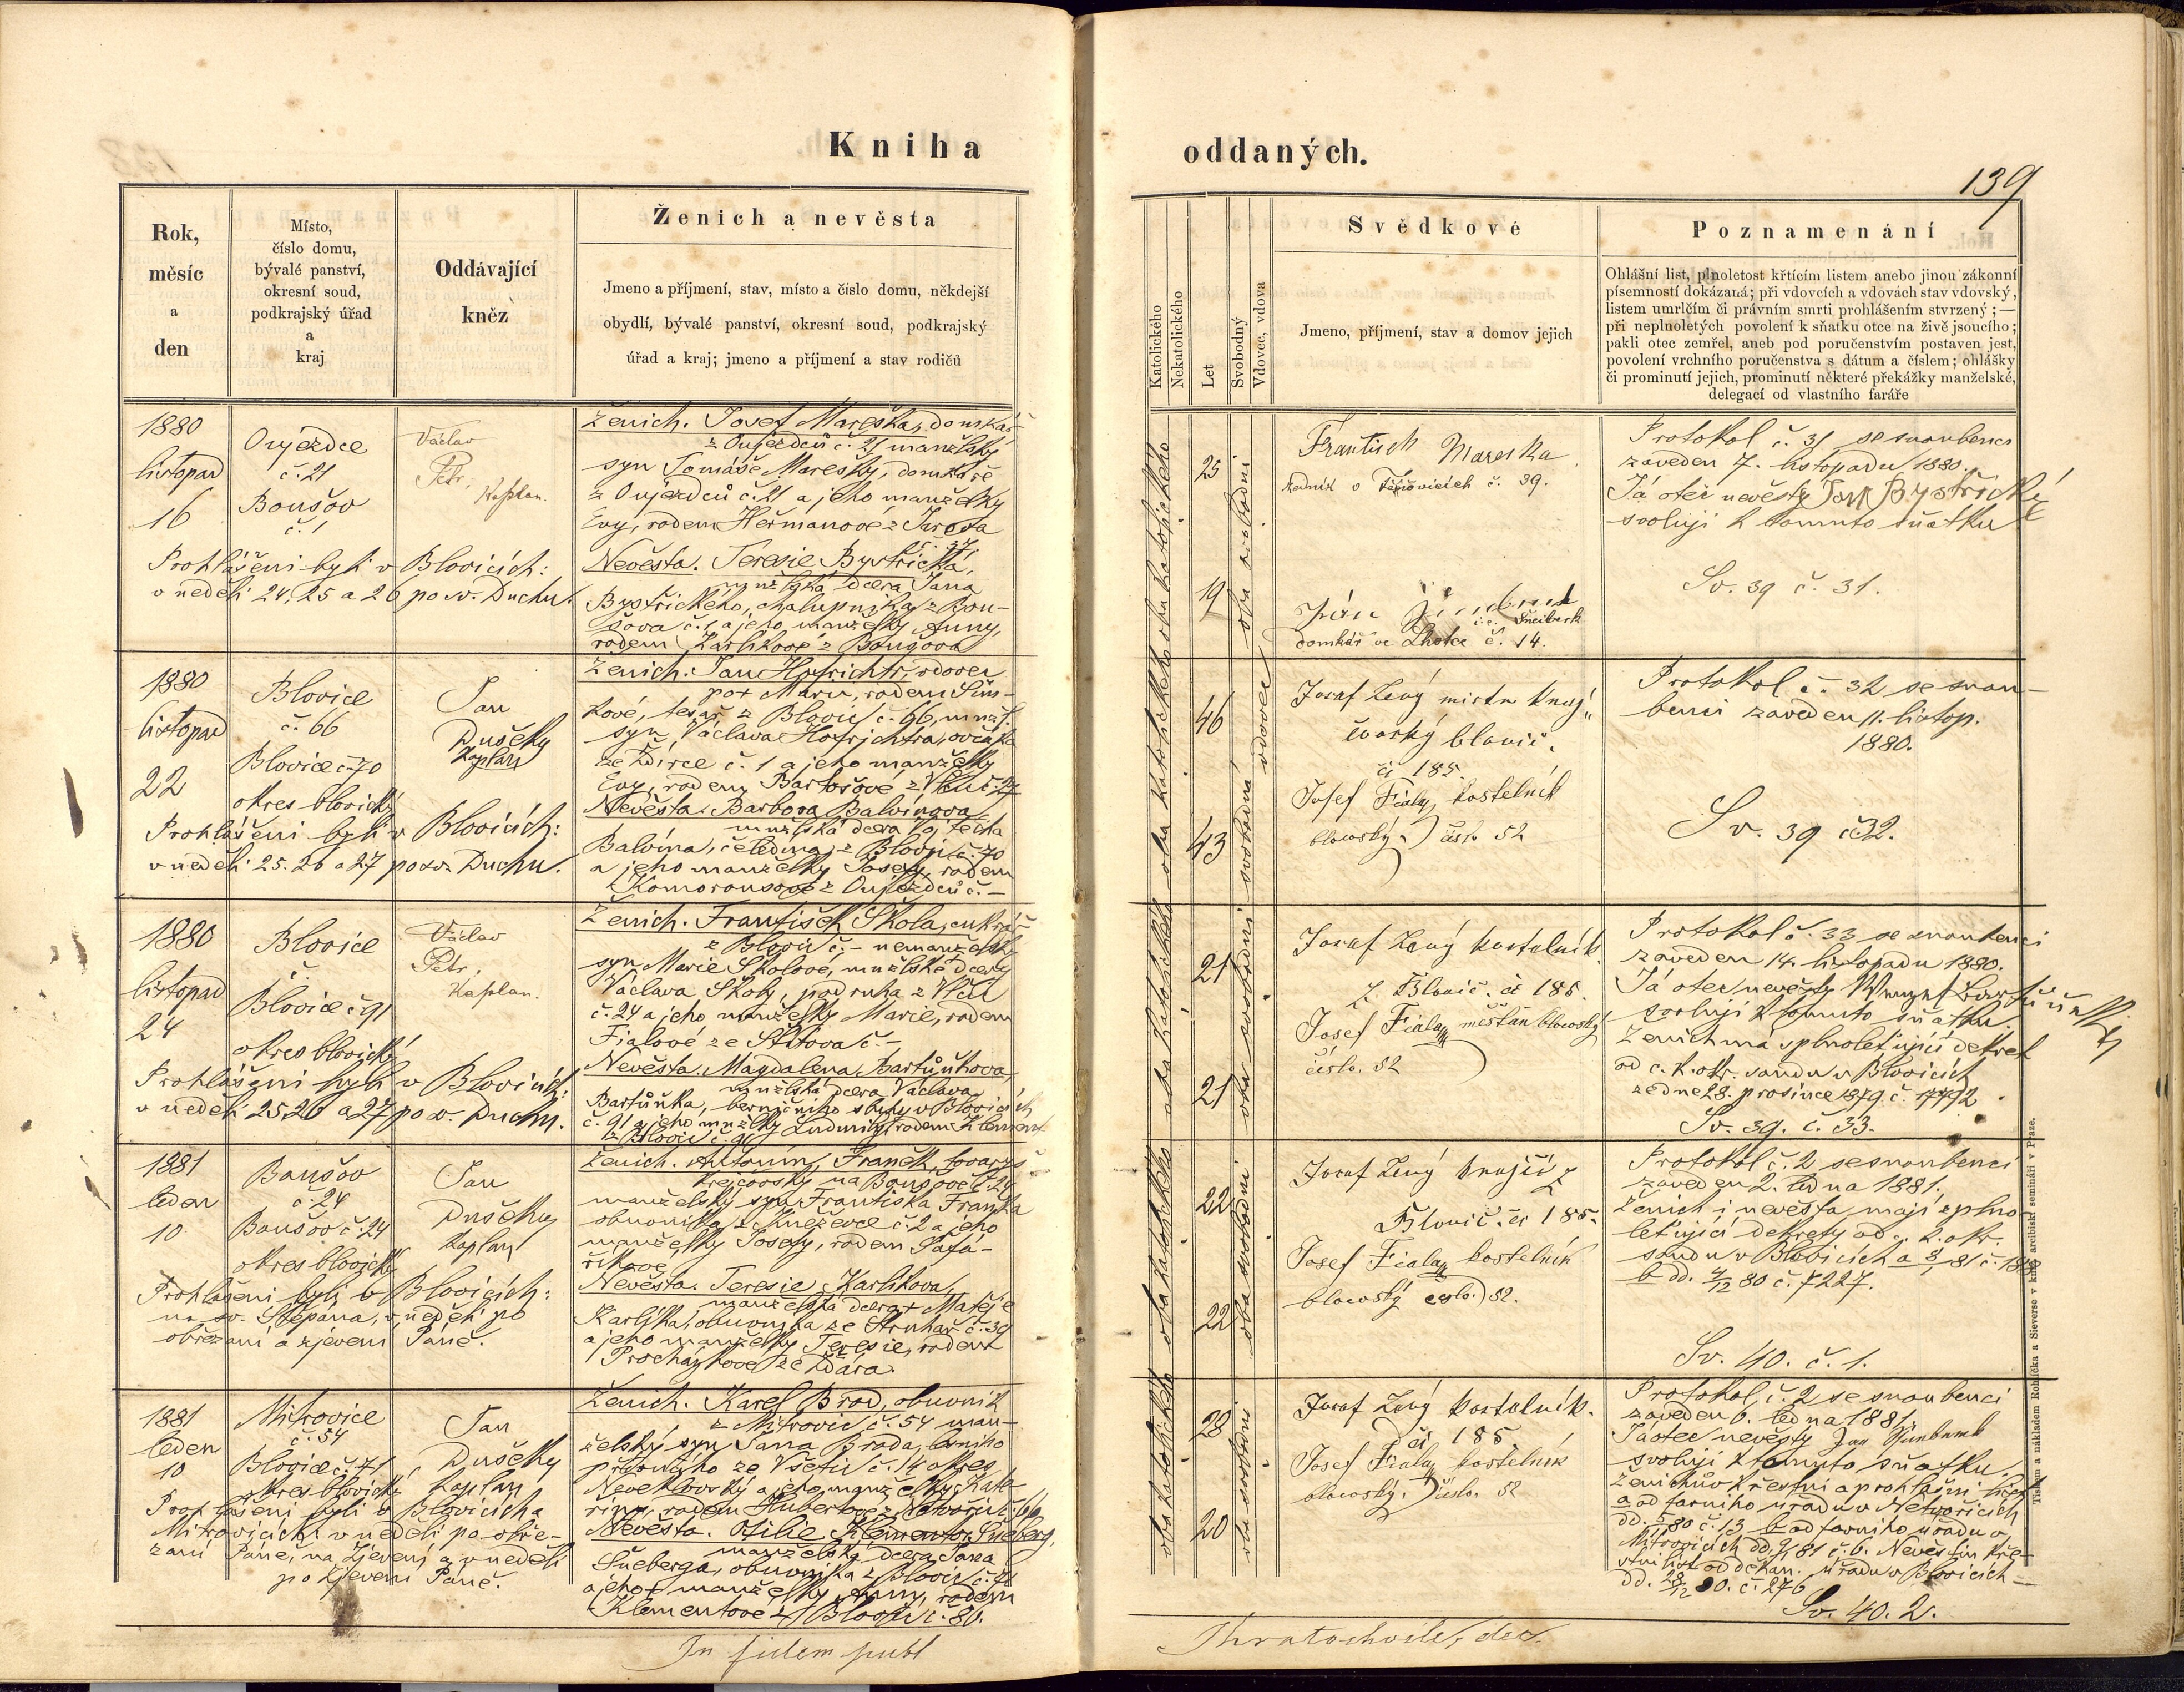 Kniha oddaných.
139
Rok,
měsíc
a
den
Místo,
číslo domu,
bývalé panství,
okresní soud,
podkrajský úřad
a
kraj
Oddávající
kněz
Ženich a nevěsta
Jmeno a příjmení, stav, místo a číslo domu, někdejší
obydlí, bývalé panství, okresní soud, podkrajský
úřad a kraj; jmeno a příjmení a stav rodičů
Katolického
Nekatolického
Let
Svobodný
Vdovec, vdova
Svědkové
Jmeno, příjmení, stav a domov jejich
Poznamenání
Ohlášní list, plnoletost křtícím listem anebo jinou zákonní
písemností dokázaná; při vdovcích a vdovách stav vdovský,
listem umrlčím či právním smrti prohlášením stvrzený; —
při neplnoletých povolení k sňatku otce na živě jsoucího;
pakli otec zemřel, aneb pod poručenstvím postaven jest,
povolení vrchního poručenstva s dátum a číslem; ohlášky
či prominutí jejich, prominutí některé překážky manželské,
delegací od vlastního faráře
1880
listopad
16
Oujezdce
č. 21
Boušov
č. 1
Václav
Petr,
Kaplan.
Prohlášeni byli v Blovicích:
v neděli 24, 25 a 26 po sv. Duchu.
Ženich. Josef Mareška, domkář
z Oujezdců č. 21 manželský
syn Tomáše Marešky, domkáře
z Oujezdců č. 21 a jeho manželky
Evy, rodem Heřmanové z Jarova
Nevěsta. Teresie Bystřická,
mnžlská dcera Jana
Bystřického, chalupníka z Bou-
šova č. 1 a jeho manželky Anny,
rodem Karlíkové z Boušova
oba katolického
25
19
oba svobodni
František Mareška
č. 39.
Jan
domkář ve Lhotce č. 14.
Protokol č. 31 se snoubenci
zaveden 7. listopadu 1880.
Já otec nevěsty Jan Bystřický
svoluji k tomuto sňatku
Sv. 39 č. 31.
1880
listopad
22
Blovice
č. 66
Blovice č. 70
okres blovický
Jan
Dušek
Kaplan
Prohlášeni byli v Blovicích:
v neděli 25. 26 a 27 po sv. Duchu.
Ženich: Jan Hofrichtr, vdovec
po + Marii, rodem Šim-
kové, tesař z Blovic č. 66, mnžl.
syn Václava Hofrichtra, ovčáka
ze Ždírce č. 1 a jeho manželky
Evy, rodem Bartošové z Vlčic č. 27
Nevěsta. Barbora Balvínova
mnžlská dcera Vojtěcha
Balvína, čeledína z Blovic č. 70
a jeho manželky Josefy, rodem
Komorousové z Oujezdců č. —
oba katolického
46
43
vdovec
svobodná
Josef Lený mistr krej
čovský blovic.
čí 185.
Josef Fiala, kostelník
blovský číslo 52
Protokol č. 32 se snou-
benci zaveden 11. listop.
1880.
Sv. 39 č 32.
1880
listopad
24
Blovice
č.
Blovice č 91
okres blovický
Václav
Petr,
Kaplan.
Prohlášeni byli v Blovicích:
v neděli 25 26 a 27 po sv. Duchu.
Ženich. František Škola, cukrář
z Blovic č. – nemanželský
syn Marie Školové, mnželské dcery
Václava Školy, podruha z Vlčic
č. 24 a jeho manželky Marie, rodem
Fialové ze Štítova č. –
Nevěsta. Magdalena Bartůňkova,
mnžlská dcera Václava
Bartůňka, berničního sluhy v Blovicích
č. 91 a jeho mnželky Ludmily, rodem Klement
z Blovic č. 91
oba katolického
21
21
oba svobodni
Josef Lený kostelník
z Blovic. čí 185.
Josef Fiala měšťan blovský
číslo. 52
Protokol č. 33 se snoubenci
zaveden 14. listopadu 1880.
Já otec nevěsty Bartůněk
svoluji k tomuto sňatku.
Ženich má splnoletující dekret
od c. k. okr. soudu v Blovicích
ze dne 28. prosince 1879 č. 17792
Sv. 39. č. 33.
1881
leden
10
Boušov
č. 24
Boušov č. 24
okres blovický
Jan
Dušek
Kaplan
Prohlášeni byli v Blovicích:
na sv. Štěpána, v neděli po
obřezání a zjevení Páně.
Ženich. Antonín Franěk, tovaryš
krejčovský na Boušově č. 24
manželský syn Františka Fraňka
obuvníka z Kněževce č. 2 a jeho
manželky Josefy, rodem Šafa-
říkove
Nevěsta. Teresie Karlíkova,
manželská dcera + Matěje
Karlíka, obuvníka ze Struhař č. 30
a jeho manželky Teresie, rodem
Procházkové ze Ždára
oba katolického
22
22
oba svobodni
Josef Lený krejčí z
Blovic. čí 185.
Josef Fiala kostelník
blovský číslo 52.
Protokol č. 2 se snoubenci
zaveden 2. ledna 1881.
Ženich i nevěsta mají splno
letující dekrety od c. k. okr.
soudu v Blovicích
b dd. 4/12 80 č. 7227.
Sv. 40. č. 1.
1881
leden
10
Mitrovice
č. 54
Blovice č. 71
okres blovický
Jan
Dušek
Kaplan
Prohlášeni byli v Blovicích a
Mitrovicích: v neděli po obře-
zání Páně, na Zjevení a v neděli
po Zjevení Páně.
Ženich. Karel Brod, obuvník
z Mitrovic č. 54 man-
želský syn Jana Broda, lesního
příručího ze Všetic č. 14 okres
Neveklovský a jeho manželky Kate-
řiny, rodem Hubertové z Netvořic č. 66
Nevěsta. Otilie Šneberg,
manželská dcera Jana
Šneberga, obuvníka z Blovic č. 71
a jeho + manželky Anny, rodem
Klementové z Blovic č. 80.
oba katolického
28
20
oba svobodni
Josef Lený kostelník.
čí 185
Josef Fiala kostelník
blovský. číslo. 52
Protokol č. 2 se snoubenci
zaveden 6. ledna 1881.
Já otec nevěsty Jan
svoluji k tomuto sňatku
Ženichův křestní a prohlášní
a od farního úřadu v Netvořicích
č. 13 b od farního úřadu v
Mitrovicích č. 6. Nevěstin kře-
stní list od děkan. úřadu v Blovicích
dd. 28/12 80. č. 276
Sv. 40. 2.
In fidem publ
Tiskem a nákladem Rohlíčka a Sieverse v kníž. arcibisk. semináři v Praze.